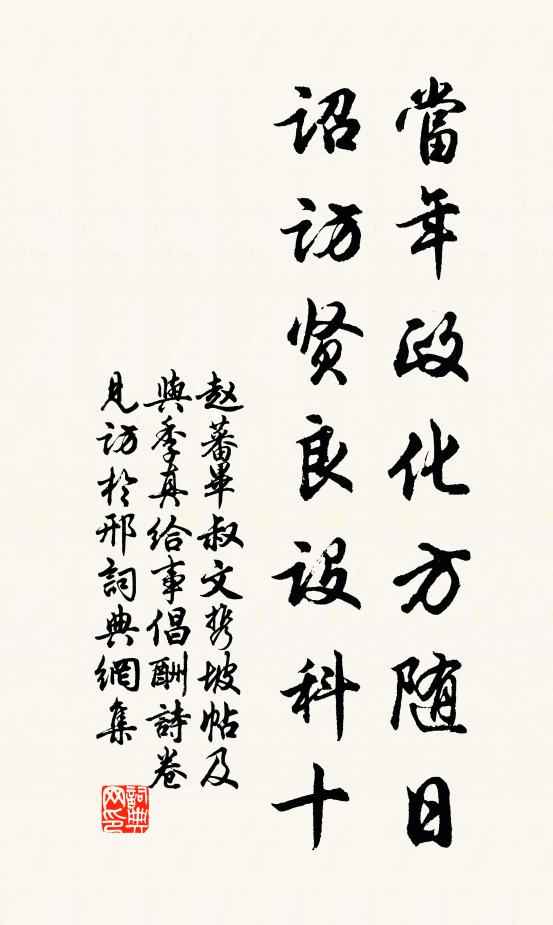 當年政化方随日
詔访贤良設科十
赵蕃畢叔文携坡帖及
與季真给事倡酬詩卷
見訪於邢詞典網集
詞典网印